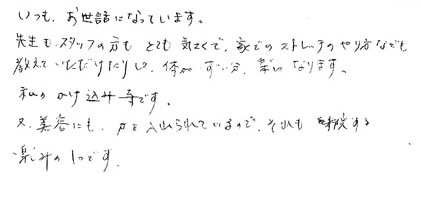 いつも、お世話になっています。
先生も、スタッフの方も とても 気さくで、家でのストレッチのやり方なども
教えていただけたりし、体が ずい分、楽になります。
私の かけ込み寺です。
又、美容にも、力を入れられているので、それも 来院する
楽しみの1つです。